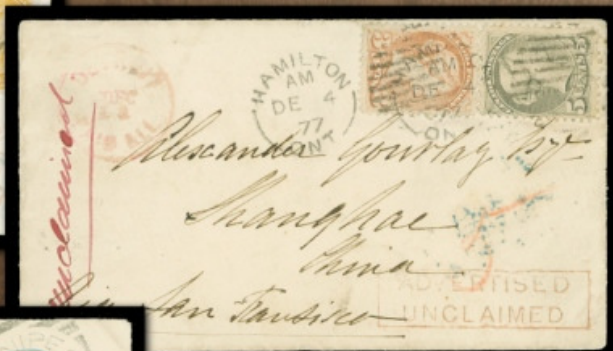 HAMILTON
AM
DE 4
77
ONT
3
AM
DE
ON
5 CENTS 5
unclaimed
Alexander Gourlay Esqr
Shanghae
China
Via San Fransisco
ADVERTISED
UNCLAIMED